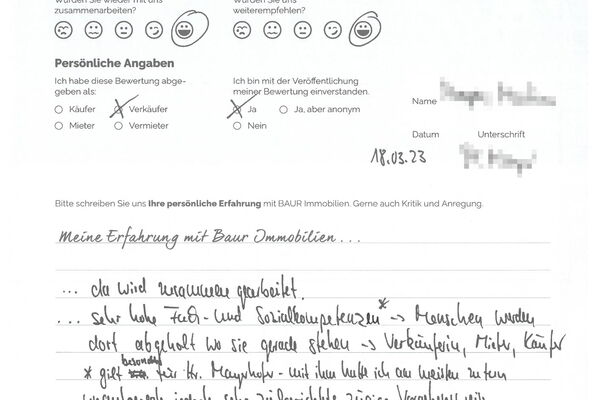 Würden Sie wieder mit uns Würden Sie uns
zusammenarbeiten? weiterempfehlen?
Persönliche Angaben
Ich habe diese Bewertung abge- Ich bin mit der Veröffentlichung
geben als: meiner Bewertung einverstanden.
Käufer Verkäufer Ja Ja, aber anonym
Mieter Vermieter Nein
Name
Datum Unterschrift
18.03.23
Bitte schreiben Sie uns Ihre persönliche Erfahrung mit BAUR Immobilien. Gerne auch Kritik und Anregung.
Meine Erfahrung mit Baur Immobilien...
... da wird zusammen gearbeitet.
... sehr hohe Fach- und Sozialkompetenzen* → Menschen werden
dort abgeholt wo sie gerade stehen → Verkäuferin, Mieter, Käufer
* gilt besonders für Hr. Mayrhofer - mit ihm hatte ich am meisten zu tun